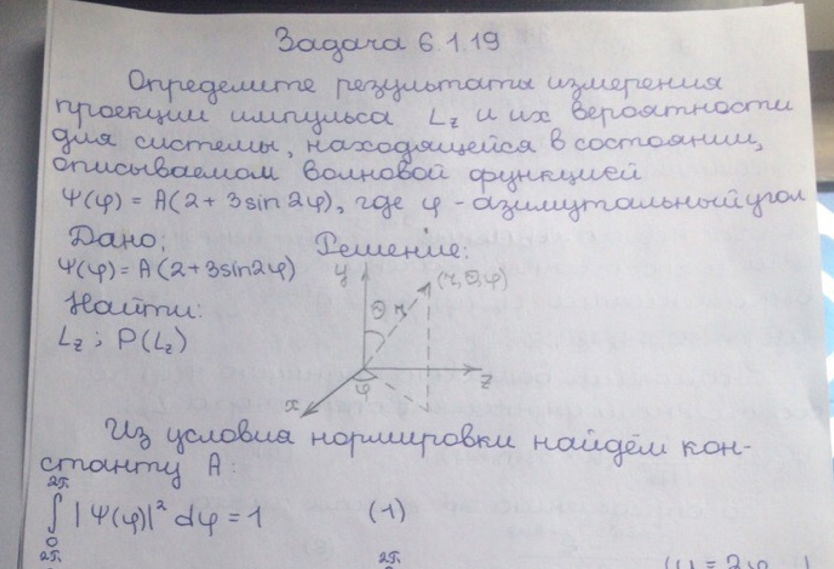 Задача 6.1.19
Определите результаты измерения
проекции импульса Lz и их вероятности
для системы, находящейся в состоянии,
описываемом волновой функцией
Ψ(φ) = A(2 + 3sin2φ), где φ - азимутальный угол
Дано: Решение:
Ψ(φ) = A(2 + 3sin2φ)
Найти:
Lz ; P(Lz)
y
(r, Θ, φ)
Θ r
z
φ
x
Из условия нормировки найдём кон-
станту A:
2π
∫ |Ψ(φ)|² dφ = 1 (1)
0
2π 2π